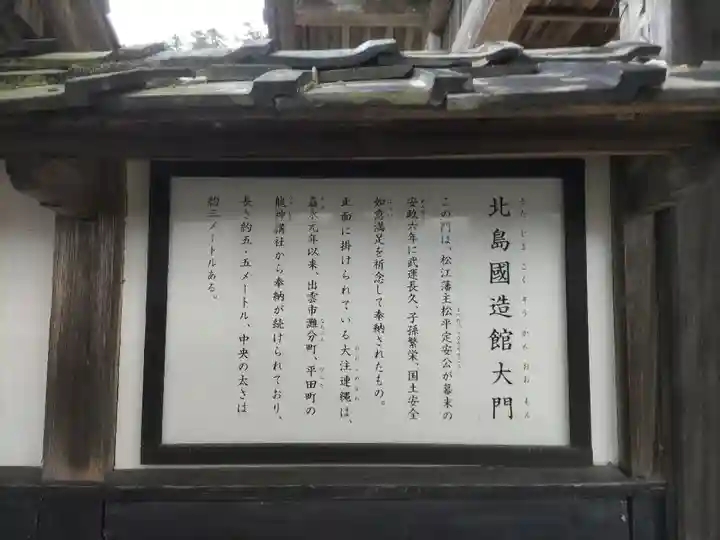 北島國造館大門
きたじまこくそうかんおおもん
この門は、松江藩主松平定安公が幕末の
安政六年に武運長久、子孫繁栄、国土安全
如意満足を祈念して奉納されたもの。
正面に掛けられている大注連縄は、
嘉永元年以来、出雲市灘分町、平田町の
龍神講社から奉納が続けられており、
長さ約五・五メートル、中央の太さは
約三メートルある。